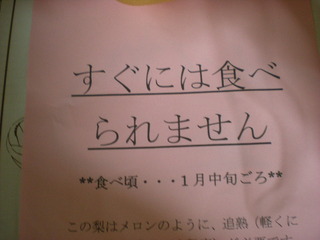 すぐには食べ
られません
**食べ頃・・・１月中旬ごろ**
この梨はメロンのように、追熟（軽くに